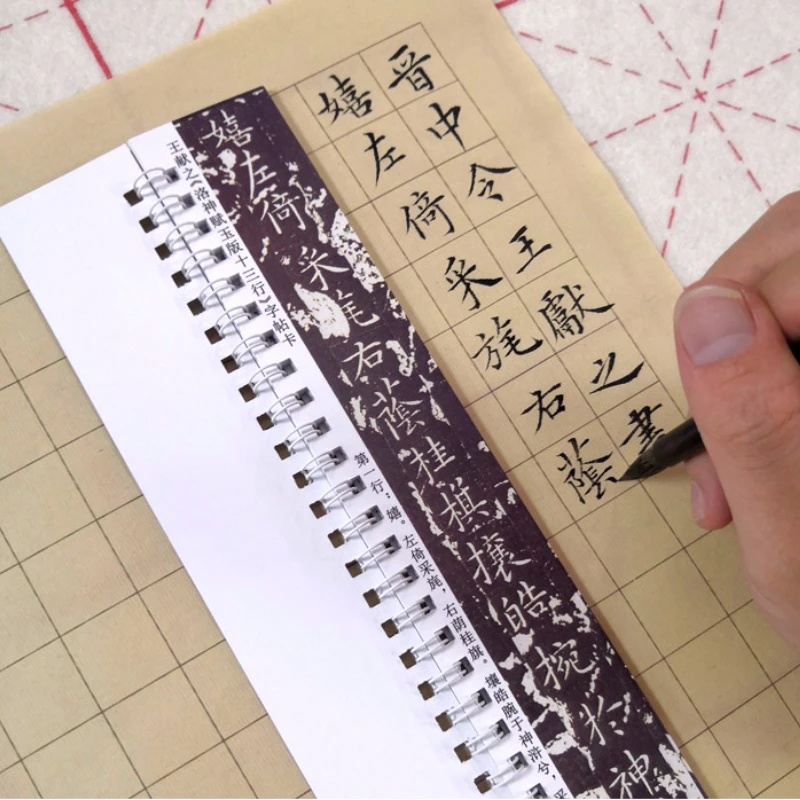 晋中令王獻之書
嬉左倚采旄右蔭
嬉左倚采旄右蔭桂旗攘皓捥於神
王献之《洛神赋玉版十三行》字帖卡
第一行：嬉。左倚采旄，右荫桂旗。攘皓腕于神浒兮，